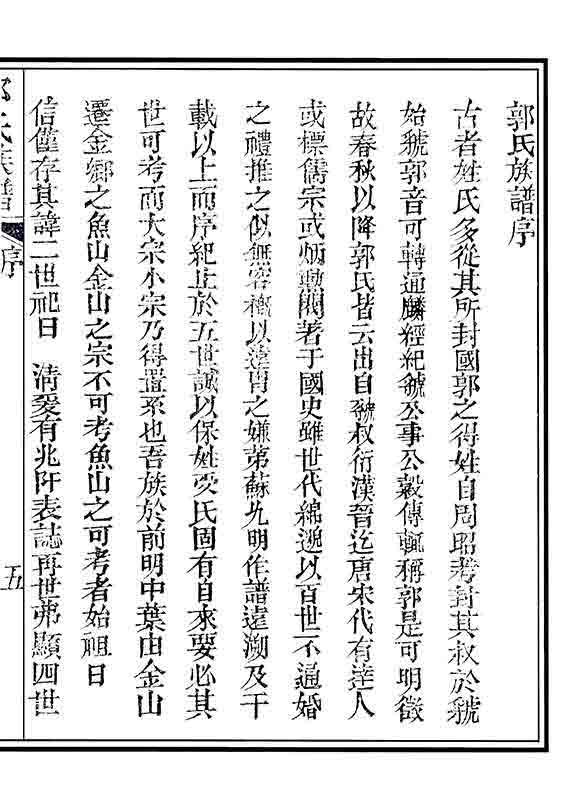 郭氏族譜序
古者姓氏多從其所封國郭之得姓自周昭考封其叔於虢
始虢郭音可轉通麟經紀虢公事公穀傳輒稱郭是可明徵
故春秋以降郭氏皆云出自虢叔衍漢晉迄唐宋代有達人
或標儒宗或炳勲閥著于國史雖世代綿遞以百世不通婚
之禮推之似無容概以遠胄之嫌苐蘇允明作譜遠溯及千
載以上而序紀止於五世誠以保姓受氏固有自來要必其
世可考而大宗小宗乃得置系也吾族於前明中葉由金山
遷金鄉之魚山金山之宗不可考魚山之可考者始祖日
信僅存其諱二世祀日 清爰有兆阡表誌再世弗顯四世
序
五